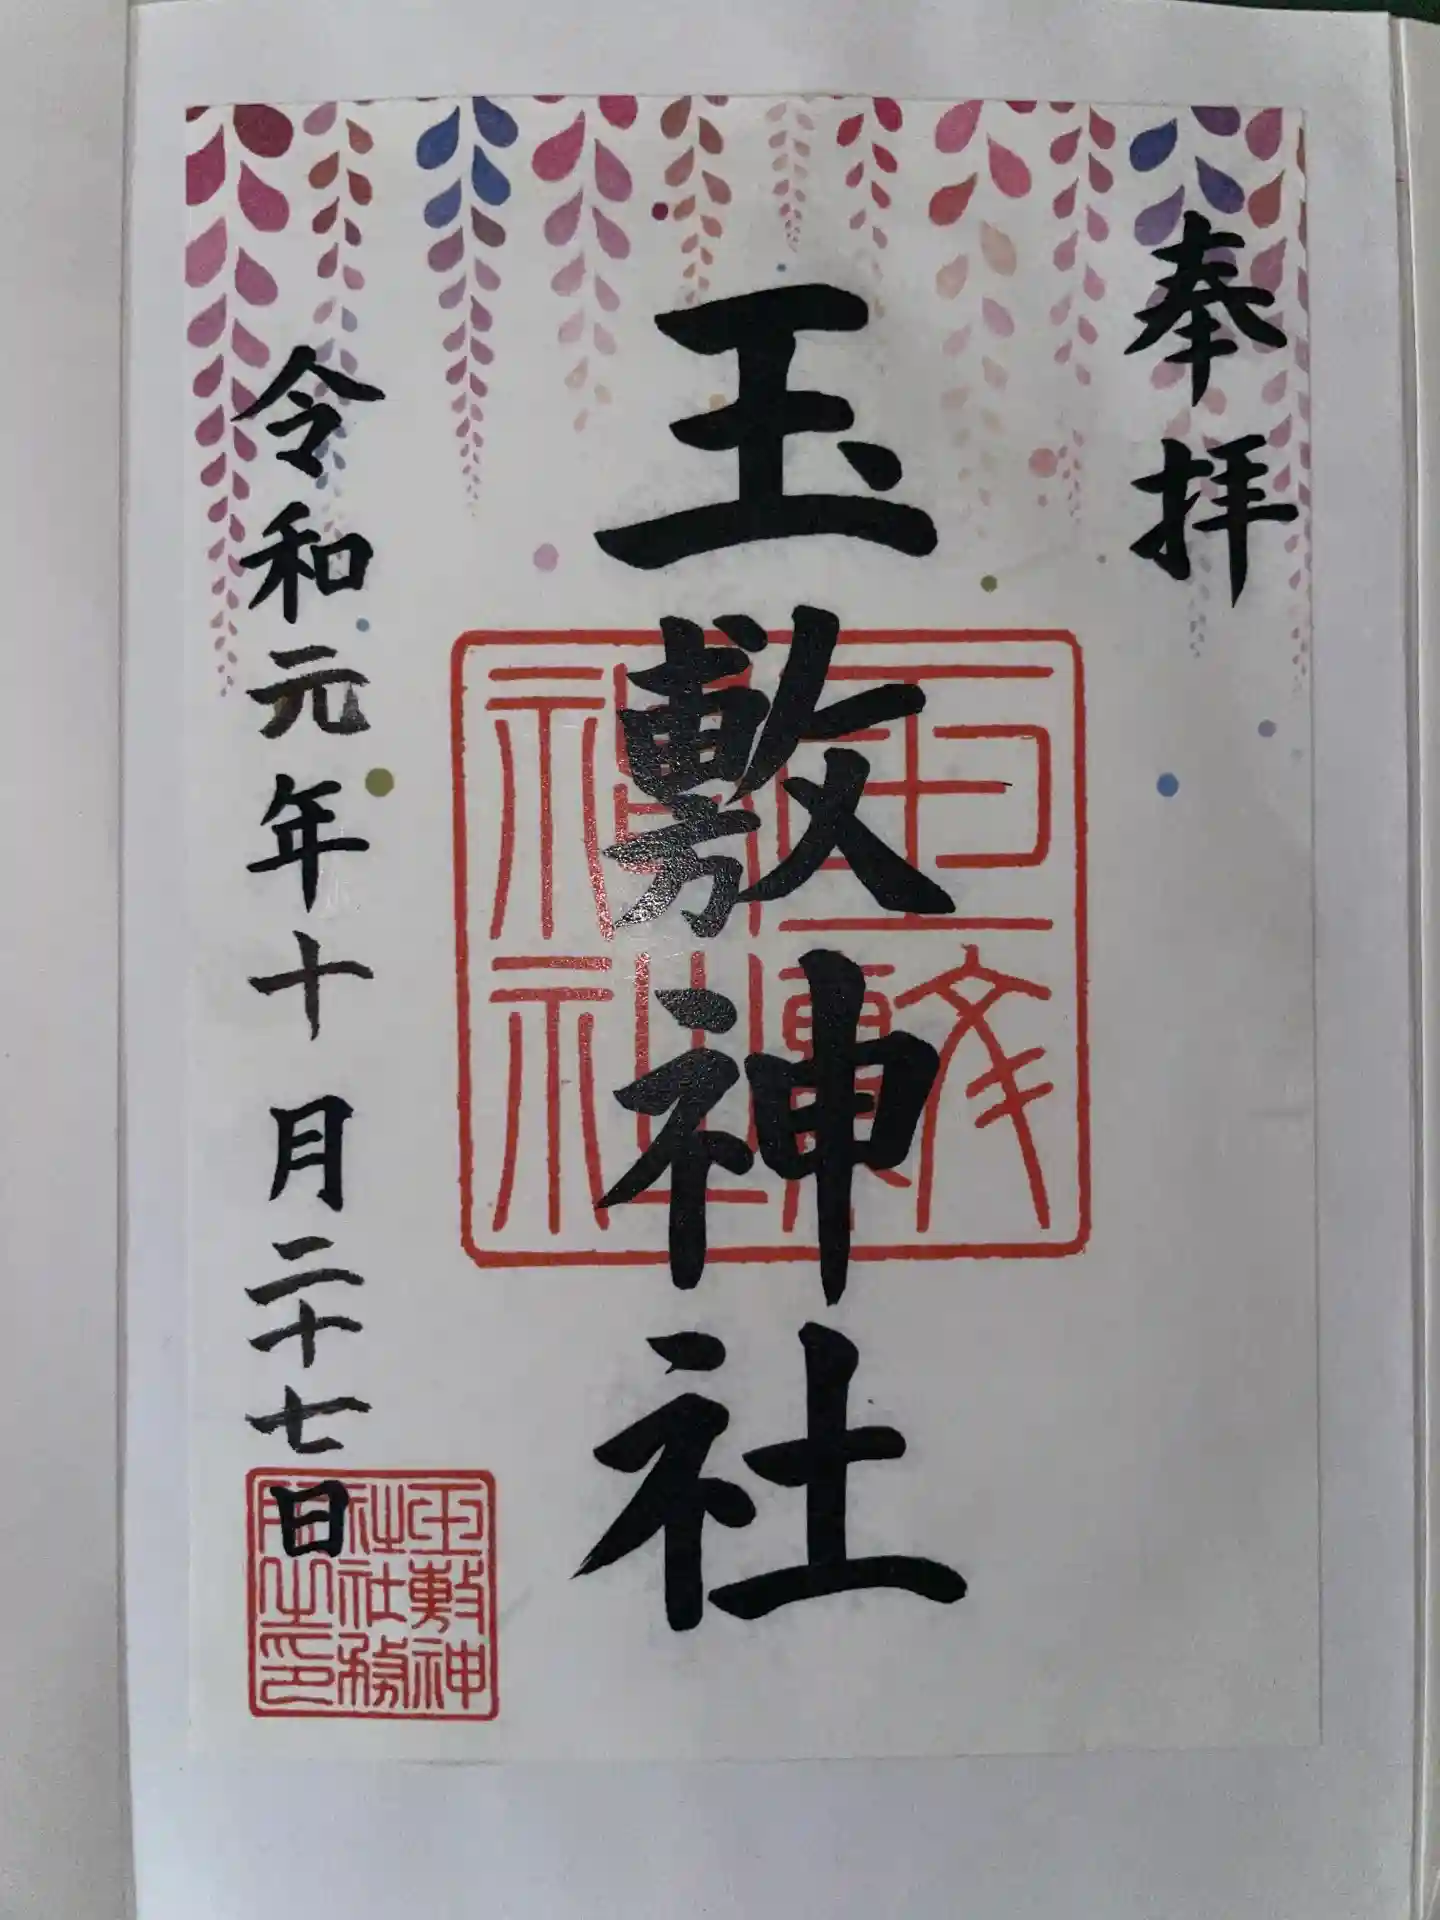 奉拝
玉敷神社
令和元年十月二十七日
玉敷神社
玉敷神
社社務
所之印